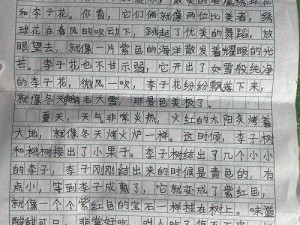 和李子花，你看，它们俩就像两位比美者，绣
球花在春风的吹动下，跳起了优美的舞蹈，放
眼望去，就像一片紫色的海洋散发着耀眼的光
芒。李子花也不甘示弱，它开出了如雪般纯洁
的李子花，微风一吹，李子花纷纷飘落下来，
就像冬天鹅毛大雪，那景色美极了。
夏天，天气非常炎热，火红的太阳炙烤着
大地，就像冬天烤火炉一样。这时候，李子树
和桃树接出了小果子。李子树结出了几个小小
的李子，李子刚刚结出来的时候是青色的，有
点小，等到李子成熟了，它就变成了紫红色，
就像一个个紫红色的宝石一样挂在树上，味道
酸甜可口，非常好吃